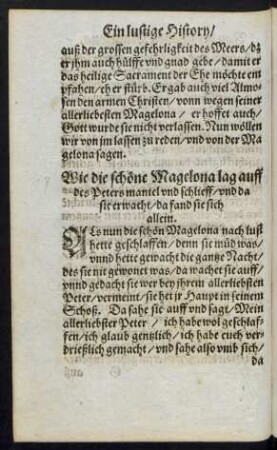 Ein lustige History/
auß der grossen gefehrligkeit des Meers/ dz
er jhm auch hülffe vnd gnad gebe/ damit er
das heilige Sacrament der Ehe möchte em
pfahen/ eh er stürb. Er gab auch viel Almo-
sen den armen Christen/ vonn wegen seiner
allerliebesten Magelona/ er hoffet auch/
Gott wurde sie nicht verlassen. Nun wöllen
wir von jm lassen zu reden/ vnd von der Ma
gelona sagen.
Wie die schöne Magelona lag auff
des Peters mantel vnd schlieff/ vnd da
sie erwacht/ da fand sie sich
allein.
ALs nun die schön Magelona nach lust
hette geschlaffen/ denn sie müd was/
vnnd hette gewacht die gantze Nacht/
des sie nit gewonet was/ da wachet sie auff/
vnnd gedacht sie wer bey jhrem allerliebsten
Peter/ vermeint/ sie het jr Haupt in seinem
Schoß. Da sahe sie auff vnd sagt/ Mein
allerliebster Peter/ ich habe wol geschlaf-
fen/ ich glaub gentzlich/ ich habe euch ver-
drießlich gemacht/ vnd sahe also vmb sich/
da